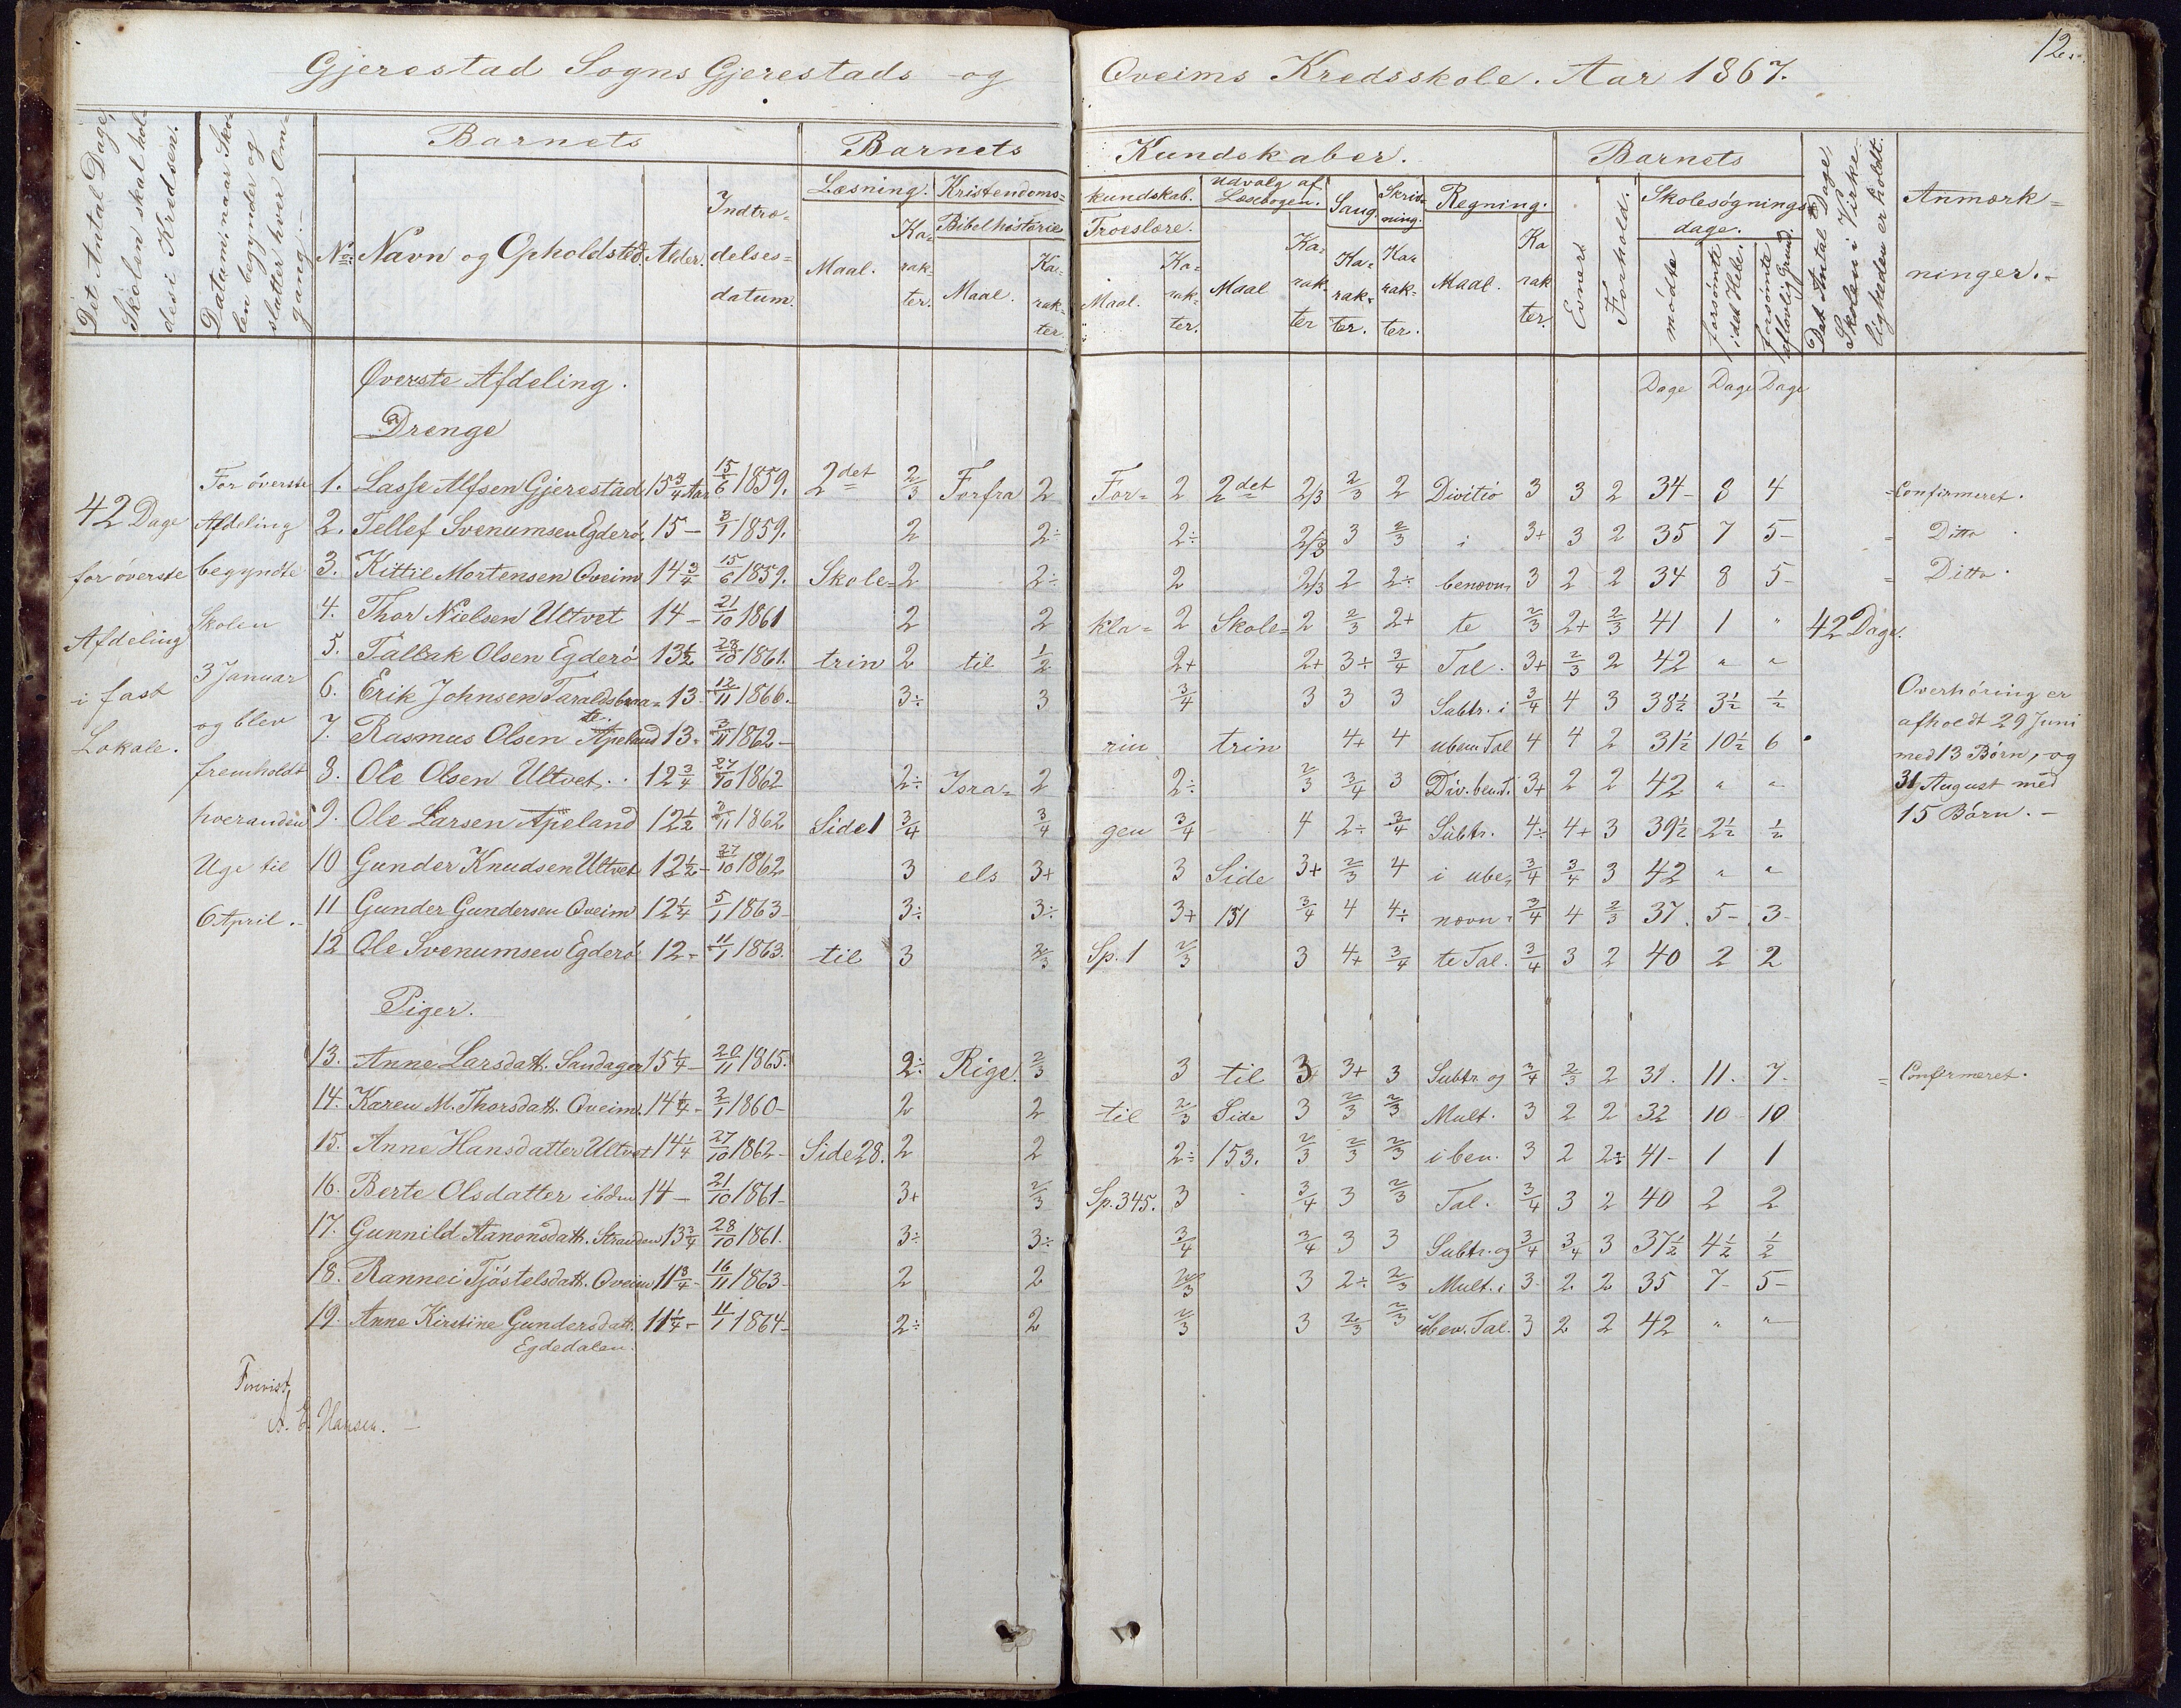 12.
Gjerestad Sogns Gjerestads og Qveims Kredsskole. Aar 1867.
Det Antal Dage, Skolen skal holdes i Kredsen.
Datum, naar Skolen begynder og slutter hver Omgang.
Barnets
No. Navn og Opholdsted. Alder. Indtrædelsesdatum.
Barnets Kundskaber.
Læsning. Maal. Karakter.
Kristendomskundskab.
Bibelhistorie Maal. Karakter.
Troeslære. Maal. Karakter.
Udvalg af Læsebogen. Maal Karakter
Sang. Karakter.
Skrivning. Karakter.
Regning. Maal. Karakter.
Barnets
Evner.
Forhold.
Skolesøgningsdage.
mødte
forsømte i det Hele.
forsømte af lovlig Grund.
Det Antal Dage Skolen i Virkeligheden er holdt.
Anmærkninger.
Dage Dage Dage
Øverste Afdeling.
Drenge
42 Dage
for øverste
Afdeling
i fast
Lokale.
For øverste
Afdeling
begyndte
Skolen
3 Januar
og blev
fremholdt
hveranden
Uge til
6 April.
1. Lasse Alfsen Gjerestad 15 3/4 Aar 15/6 1859. 2det 2/3 Forfra 2 For= 2 2det 2/3 2/3 2 Divitio 3 3 2 34 8 4 Confirmeret.
2. Tellef Svenumsen Egderø 15 3/1 1859. 2 2÷ 2÷ 2/3 3 2/3 i 3+ 3 2 35 7 5 Ditto
3. Kittil Mortensen Qveim 14 3/4 15/6 1859. Skole= 2 2÷ 2 2/3 2 2÷ benævn= 3 2 2 34 8 5 Ditto
4. Thor Nielsen Ultvet 14 21/10 1861 2 2 kla= 2 Skole= 2 2/3 2+ te 2/3 2+ 2/3 41 1 " 42 Dage.
5. Tallak Olsen Egderø 13 1/2 28/10 1861. trin 2 til 1/2 2+ 2+ 3÷ 3/4 Tal. 3+ 2/3 2 42 " "
6. Erik Johnsen Taraldsbraate. 13 12/11 1866. 3÷ 3 3/4 3 3 3 Subtr. i 3/4 4 3 38 1/2 3 1/2 1/2
7. Rasmus Olsen Apeland 13 3/11 1862 rin trin 4+ 4 uben. Tal 4 4 2 31 1/2 10 1/2 6
8. Ole Olsen Ultvet. 12 3/4 27/10 1862 2÷ Isra= 2 2÷ 2/3 3/4 3 Div. ben. T. 3+ 2 2 42 " "
9. Ole Larsen Apeland 12 1/2 3/11 1862 Side 1 3/4 3/4 gen 3/4 4 2÷ 3/4 Subtr. 4÷ 4+ 3 39 1/2 2 1/2 1/2
10 Gunder Knudsen Ultvet 12 1/2 27/10 1862 3 els 3+ 3 Side 3+ 2/3 4 i ube= 3/4 3/4 3 42 " "
11 Gunder Gundersen Qveim 12 1/4 5/1 1863 3÷ 3÷ 3+ 131 3/4 4 4÷ nævn= 3/4 4 2/3 37 5 3
12 Ole Svenumsen Egderø 12 11/1 1863. til 3 2/3 Sp. 1 2/3 3 4+ 3/4 te Tal. 3/4 3 2 40 2 2
Overhøring er
afholdt 29 Juni
med 13 Børn, og
31 August med
15 Børn.
Piger.
13. Anne Larsdatt. Sandager 15 1/4 20/11 1865. 2÷ Rige. 2/3 3 til 3 3+ 3 Subtr. og 3/4 2/3 2 31. 11. 7. Confirmeret.
14. Karen M. Thorsdatt. Qveim. 14 1/4 2/1 1860 2 2 til 2/3 Side 3 2/3 2/3 Mult. 3 2 2 32 10 10
15. Anne Hansdatter Ultvet 14 1/4 27/10 1862 Side 28. 2 2 2÷ 153. 2/3 2/3 2/3 i ben. 3 2 2÷ 41 1 1
16. Berte Olsdatter ibdm 14 21/10 1861 3+ 2/3 Sp. 345. 3 3/4 3 2/3 Tal. 3/4 3 2 40 2 2
17. Gunnild Aanonsdatt. Stranden 13 3/4 28/10 1861. 3÷ 3÷ 3/4 3/4 3 3 Subtr. og 3/4 3/4 3 37 1/2 4 1/2 1/2
18. Rannei Tjøstelsdatt. Qveim 11 3/4 16/11 1863 2 2 2/3 3 2÷ 2/3 Mult. i 3 2 2 35 7 5
19. Anne Kirstine Gundersdatt. 11 1/4 11/1 1864 2÷ 2 2/3 3 2/3 2/3 uben. Tal. 3 2 2 42 " "
Egdedalen.
Forevist
A. E. Hansen.